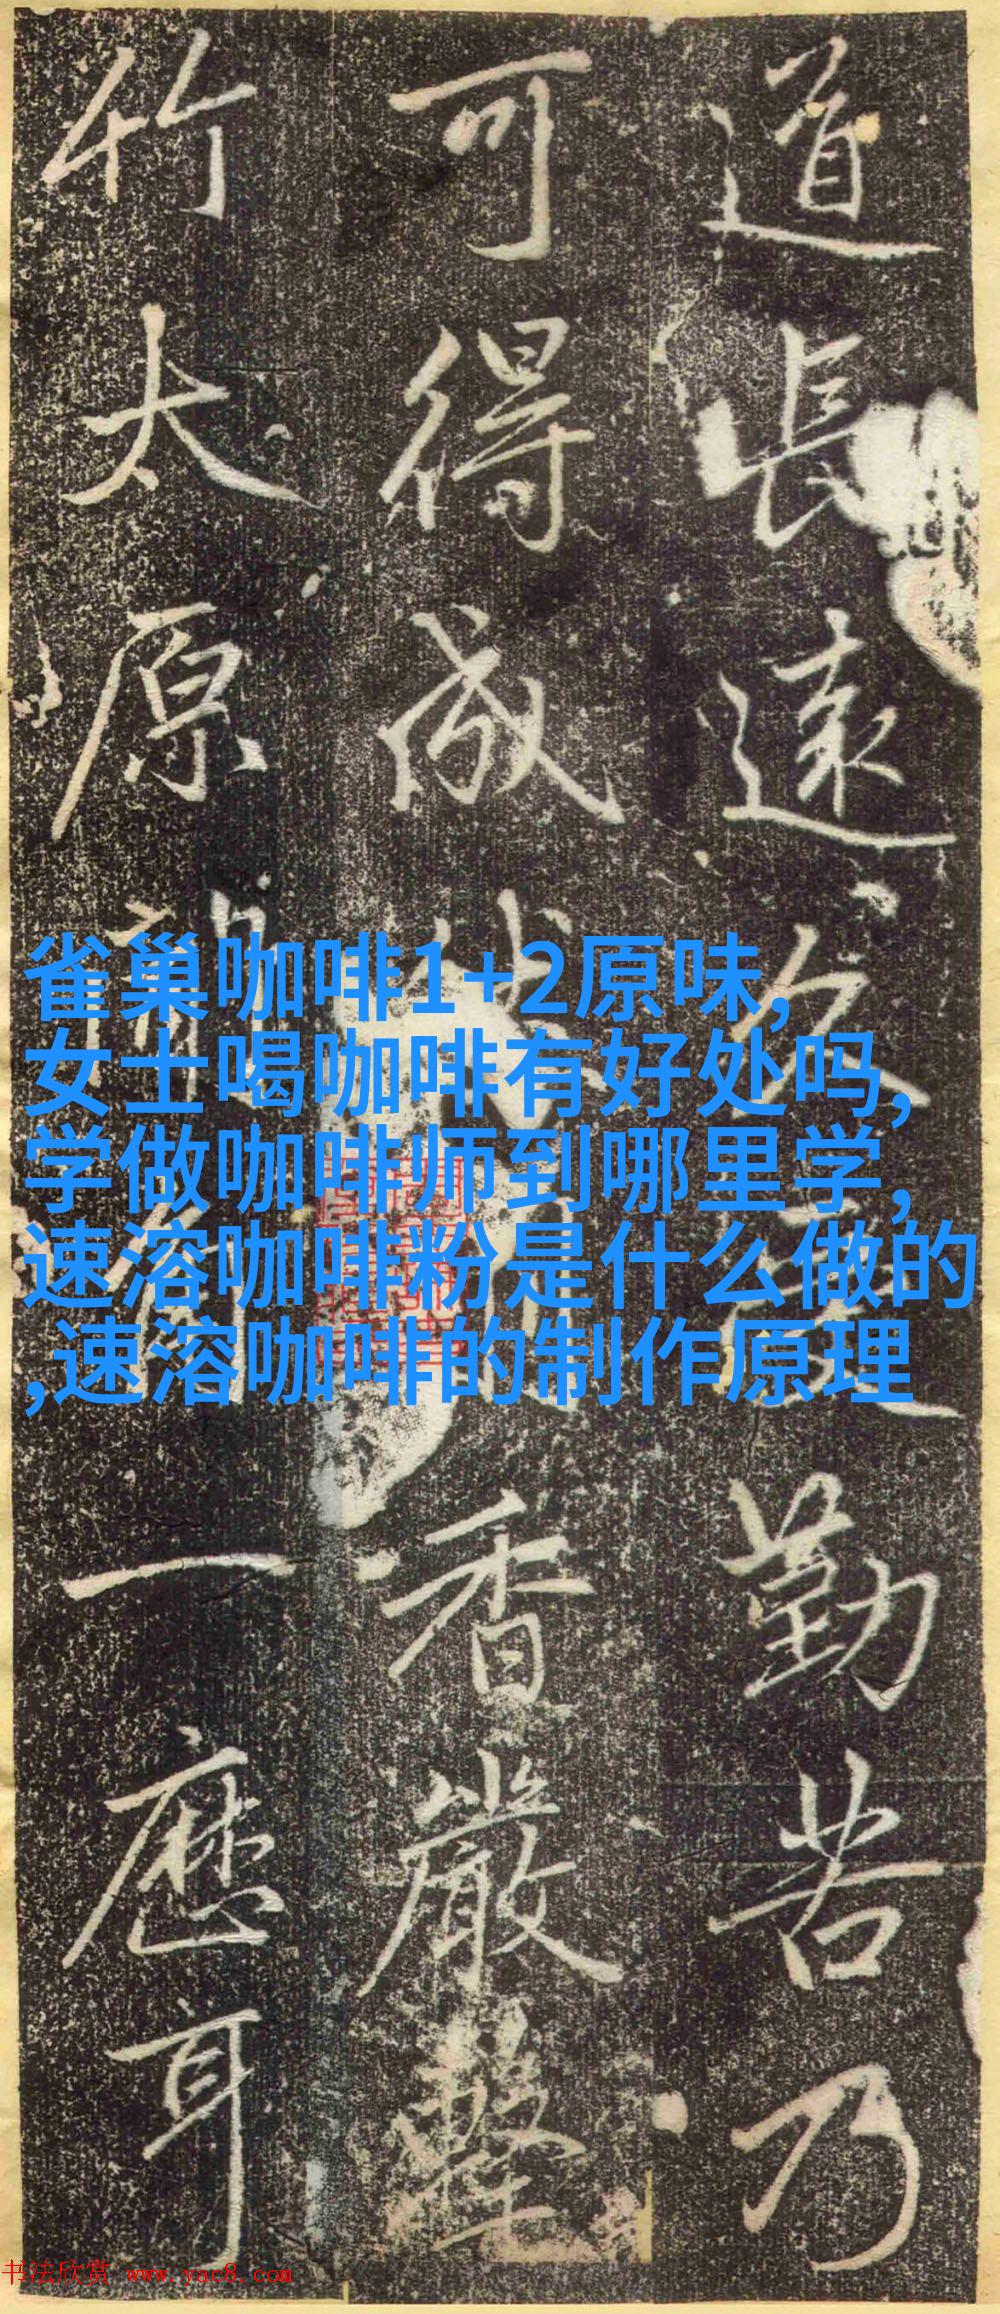 道長遠久勤苦乃
可得成香嚴擊
竹太原一應耳
雀巢咖啡1+2原味,
女士喝咖啡有好处吗,
学做咖啡师到哪里学,
速溶咖啡粉是什么做的
,速溶咖啡的制作原理
书法欣赏 www.yac8.com